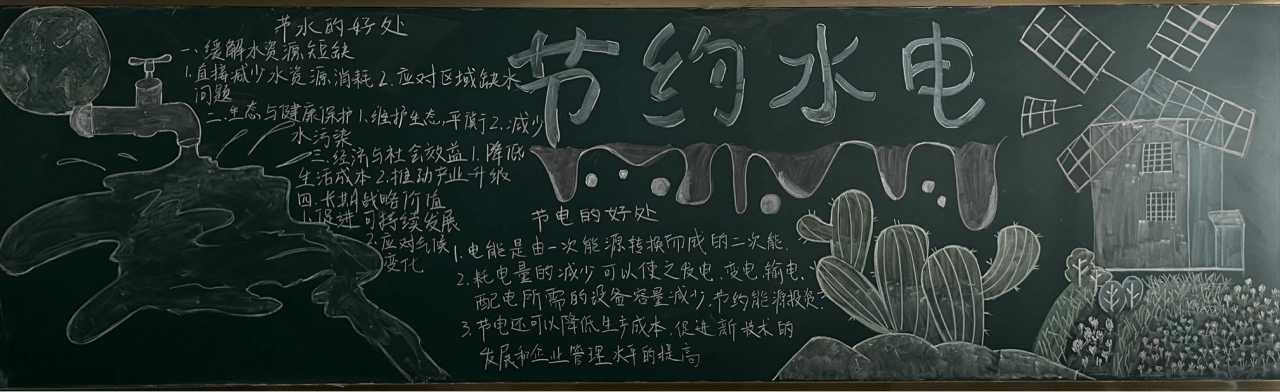 节约水电
节水的好处
一、缓解水资源短缺
1.直接减少水资源消耗2.应对区域缺水
问题
二.生态与健康保护1.维护生态平衡2.减少
水污染
三.经济与社会效益1.降低
生活成本2.推动产业升级
四.长期战略价值
1.促进可持续发展
2.应对气候
变化
节电的好处
1.电能是由一次能源转换而成的二次能.
2.耗电量的减少可以使之发电.变电.输电.
配电所需的设备容量减少.节约能源投资?
3.节电还可以降低生产成本.促进新技术的
发展和企业管理水平的提高